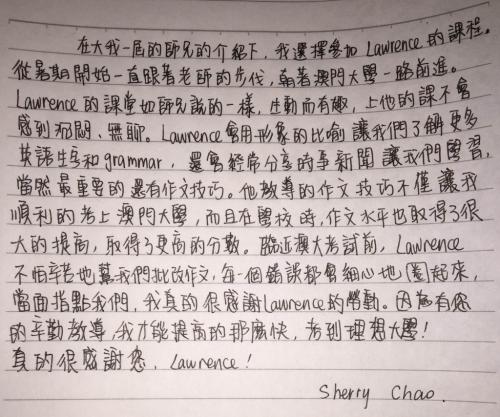 在大我一屆的師兄的介紹下，我選擇參加 Lawrence 的課程。
從暑期開始一直跟著老師的步伐，朝著澳門大學一路前進。
Lawrence 的課堂如師兄說的一樣，生動而有趣，上他的課不會
感到沉悶、無聊。Lawrence 會用形象的比喻讓我們了解更多
英語生字和 grammar，還會經常分享時事新聞讓我們學習，
當然最重要的還有作文技巧。他教導的作文技巧不僅讓我
順利的考上澳門大學，而且在學校時，作文水平也取得了很
大的提高，取得了更高的分數。臨近澳大考試前，Lawrence
不怕辛苦地幫我們批改作文，每一個錯誤都會細心地圈起來，
當面指點我們，我真的很感謝 Lawrence 的勞動。因為有您
的辛勤教導，我才能提高的那麼快，考到理想大學！
真的很感謝您，Lawrence！
Sherry Chao.